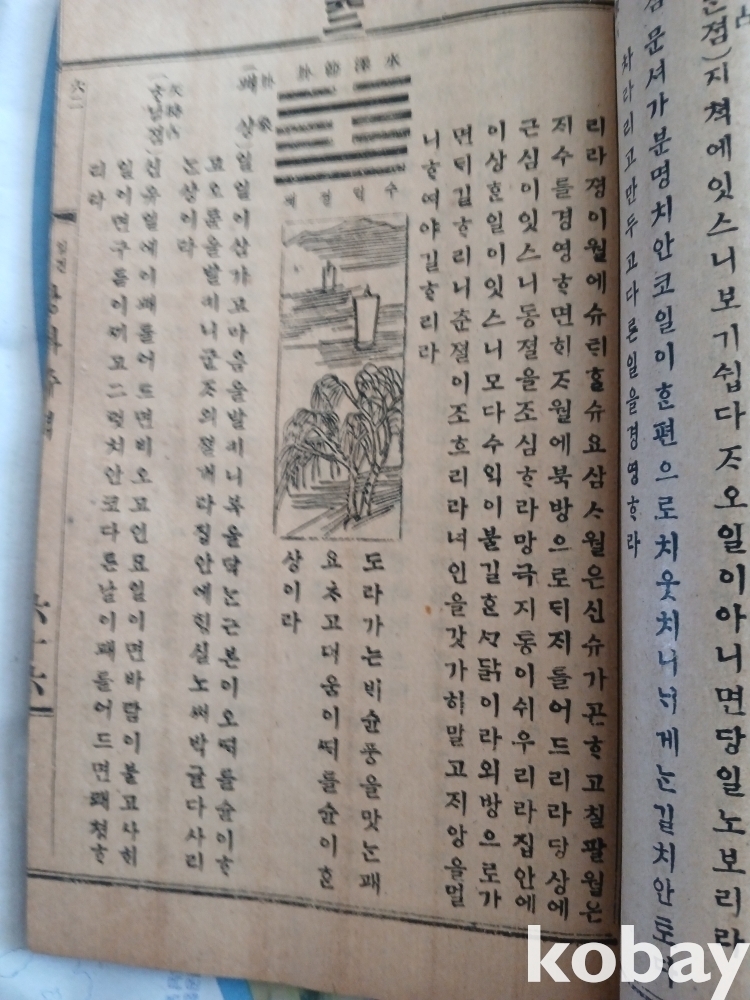 점)지쳑에잇스니보기쉽다ᄌᆞ오일이아니면당일노보리라
문셔가분명치안코일이ᄒᆞᆫ편으로치웃치니너게ᄂᆞᆫ길치안토
차라리고만두고다른일을경영ᄒᆞ라
리라졍이월에슈ᄐᆡᄒᆞᆯ슈요삼ᄉᆞ월은신슈가곤ᄒᆞ고칠팔월은
ᄌᆡ수를경영ᄒᆞ면ᄒᆡᄌᆞ월에북방으로ᄃᆡᄌᆡ를어드리라당상에
근심이잇스니동졀을조심ᄒᆞ라망극지통이쉬우리라집안에
이상ᄒᆞᆫ일이잇스니모다수ᄋᆡᆨ이불길ᄒᆞᆫ닭이라외방으로가
면ᄃᆡ길ᄒᆞ리니춘졀이조흐리라녀인을갓가히말고ᄌᆡ앙을멀
니ᄒᆞ여야길ᄒᆞ리라
水澤節卦
수ᄐᆡᆨ졀괘
도라가는ᄇᆡ슌풍을맛ᄂᆞᆫ괘
요ᄎᆞ고더움이ᄯᅢ를슌이ᄒᆞᆫ
상이라
卦象
(괘상)일일이삼가고마음을발키니복을닥ᄂᆞᆫ근본이오ᄯᅢ를슌이ᄒᆞ
고오륜을발키니군ᄌᆞ의졀개라집안에ᄒᆡᆼ실노ᄡᅥ박귈다사리
ᄂᆞᆫ상이라
天時占
졈)신유일에이괘를어드면비오고인묘일이면바람이불고사ᄒᆡ
일이면구름이ᄭᅵ고그럿치안코다른날이괘를어드면쾌쳥ᄒᆞ
리라
六二
六十六
kobay